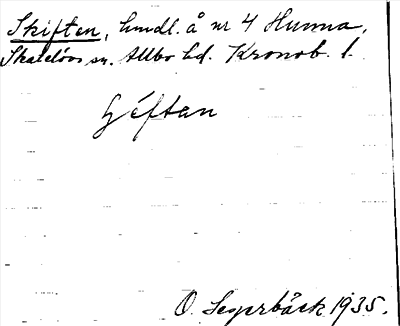 Skiften, hmdl. å nr 4 Hunna,
Skatelövs sn. Allbo hd. Kronob. l.
ʃéftan
O. Segerbäck 1935.